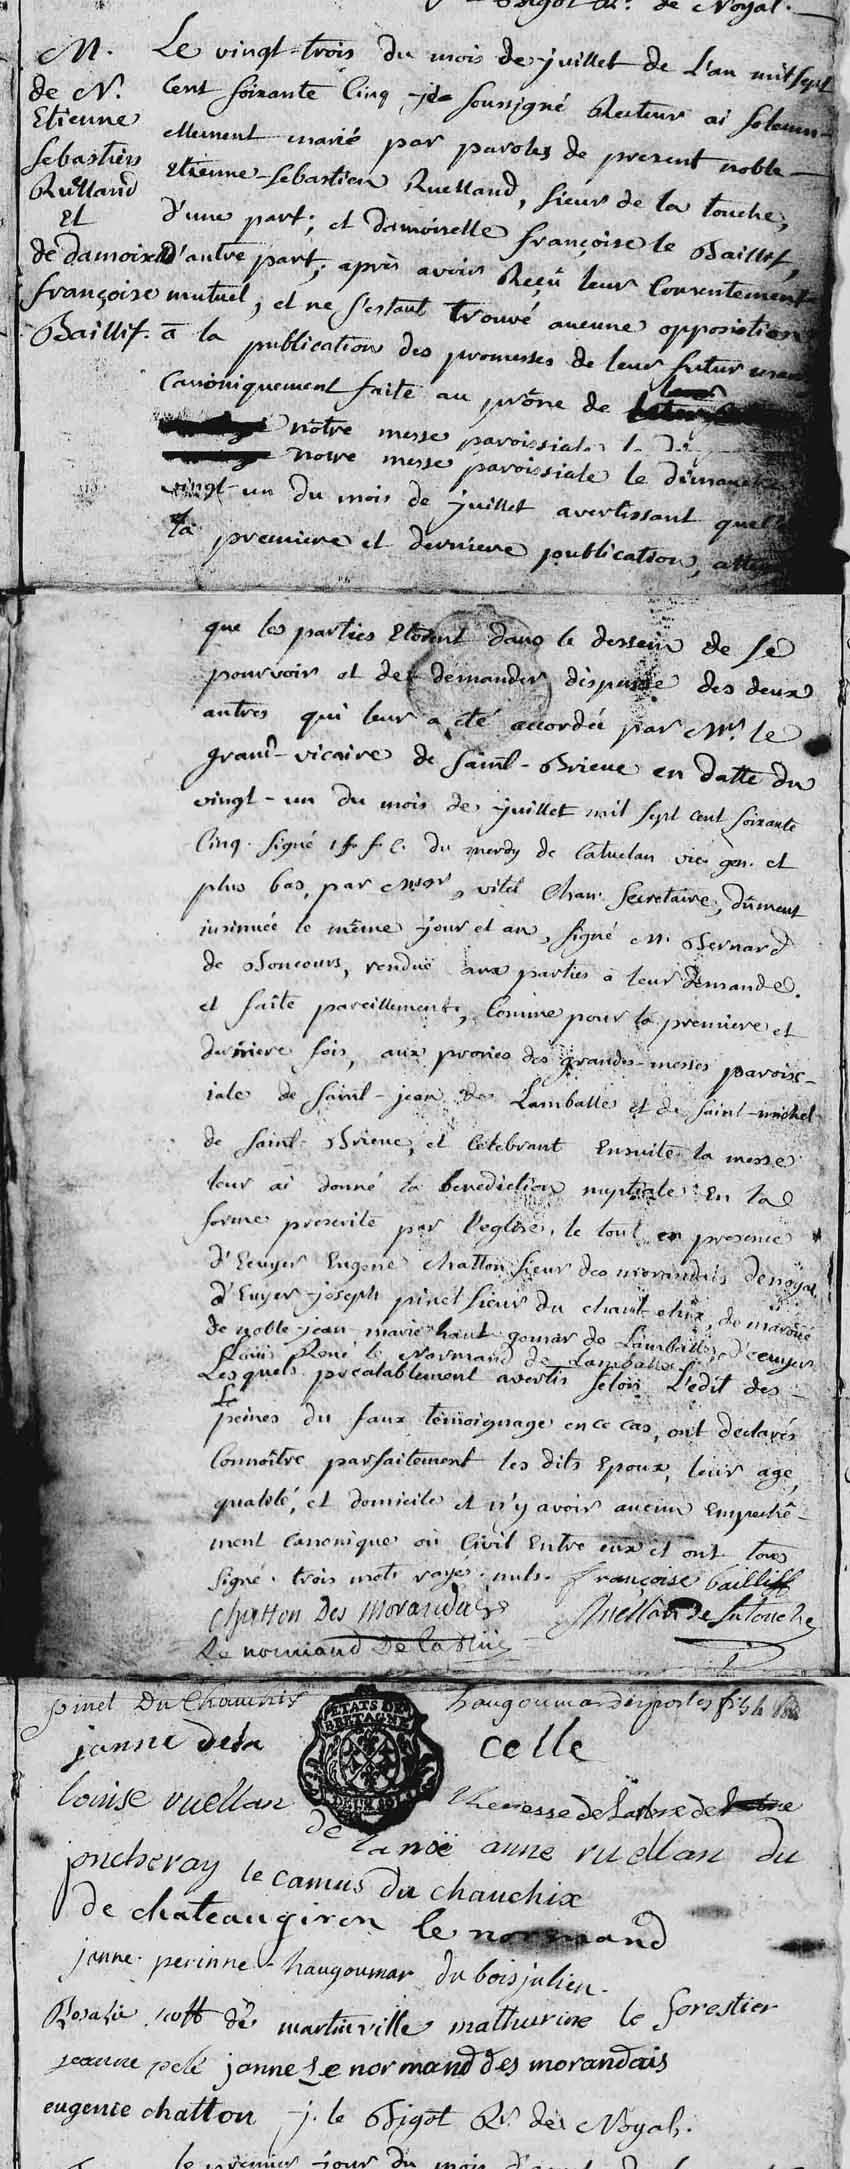 Bigot Rr. de Noyal.
M.
de N.
Etienne
Sebastien
Ruelland
Et
de damoiselle
françoise
Baillif.
Le vingt-trois du mois de juillet de L'an mil sept
Cent soixante Cinq, je soussigné Recteur ai solemn-
ellement marié par paroles de present noble
Etienne-Sebastien Ruelland, sieur de la touche,
d'une part; et damoiselle françoise le Baillif,
d'autre part; après avoir Reçû leur Consentement
mutuel, et ne s'estant trouvé aucune opposition
a la publication des promesses de leur futur
Canoniquement faite au prône de
notre messe paroissiale
notre messe paroissiale le dimanche
vingt-un du mois de juillet avertissant
la premiere et derniere publication,
que les parties Etoient dans le dessein de se
pourvoir et de demander dispense des deux
autres qui leur a eté accordée par Mr. le
grand-vicaire de saint-Brieuc en datte du
vingt-un du mois de juillet mil sept cent soixante
Cinq. signé f. f. C. du merdy de Catuelan vic. gen. et
plus bas, par Msgr, vitel Chan. Secretaire, dûment
insinuée le même jour et an, signé M. Bernard
de Boncours, rendue aux parties a leur demande.
et faite pareillement, Comme pour la premiere et
derniere fois, aux prones des grandes-messes paroiss-
iale de saint-jean de Lamballe et de saint-michel
de saint-Brieuc, et Celebrant Ensuite la messe
leur ai donné la benediction nuptiale En la
forme prescrite par l'eglise. le tout en presence
d'Ecuyer Eugene Chatton sieur des morandais de noyal,
d'Ecuyer joseph pinel sieur du chauchix, de maroüé
de noble jean-marie haut-gomar de Lamballe, d'ecuyer
Louis René le Normand de Lamballe
Lesquels prealablement avertis selon L'edit des
peines du faux temoignage en ce cas, ont declarés
Connoître parfaitement les dits Epoux, leur age,
qualité, et domicile et n'y avoir aucun Empechê-
ment canonique ou Civil Entre eux et ont tous
signé. trois mots rayés nuls. françoise bailliff
Chatton Des Morandais Ruellan de Latouche
Le normand De la
pinel Du Chauchix haugoumar des portes fils
ETATS DE BRETAGNE
janne de la celle
louise ruellan
de la noë anne ruellan du
joncheray le camus du chauchix
de chateaugiron le normand
janne perinne haugoumar du boisjulien.
Rosalie scott de martinville mathurine le forestier
jeanne pelé janne Le normand des morandais
eugenie chatton j. le Bigot Rr. de Noyal.
le premier jour du mois